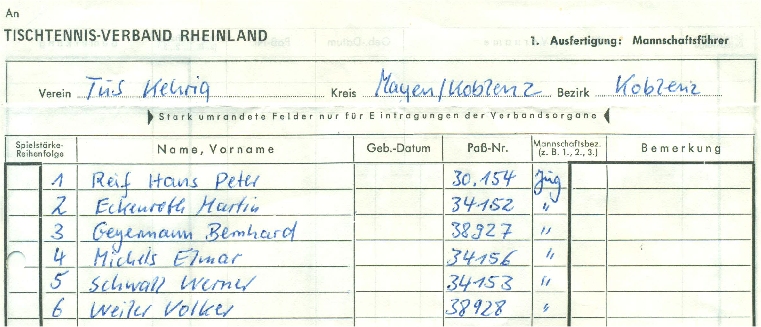 An
TISCHTENNIS-VERBAND RHEINLAND
1. Ausfertigung: Mannschaftsführer
Verein TuS Kehrig Kreis Mayen/Koblenz Bezirk Koblenz
Stark umrandete Felder nur für Eintragungen der Verbandsorgane
Spielstärke-Reihenfolge Name, Vorname Geb.-Datum Paß-Nr. Mannschaftsbez. (z. B. 1., 2., 3.) Bemerkung
1 Reif Hans Peter 30.154 Jug
2 Eckenroth Martin 34152 "
3 Geyermann Bernhard 38927 "
4 Michels Elmar 34156 "
5 Schwall Werner 34153 "
6 Weiler Volker 38928 "